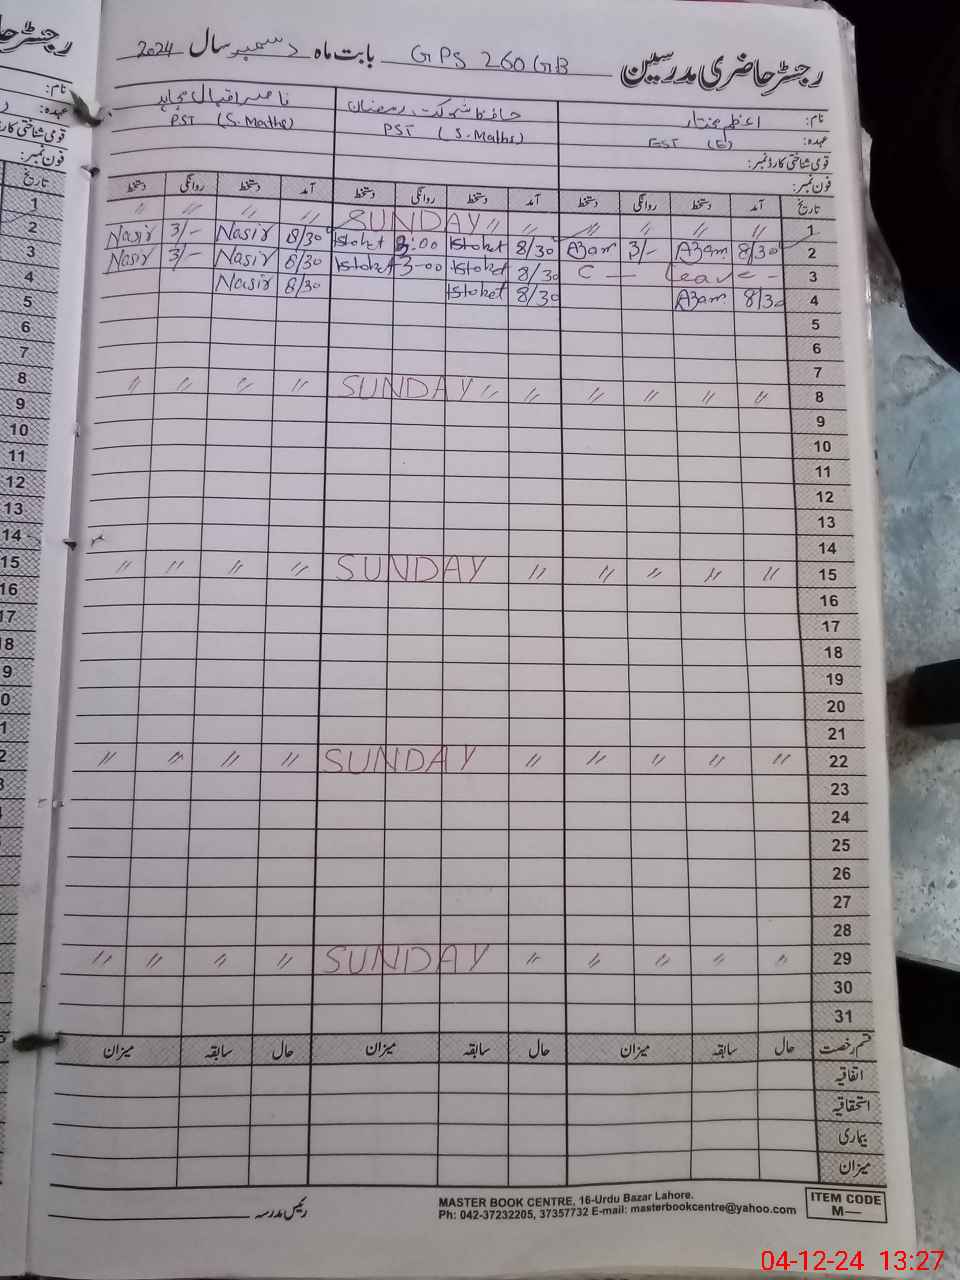 رجسٹر حاضری مدرسین GPS 260 GB بابت ماہ دسمبر سال 2024
نام: اعظم مختار حافظ شوکت رمضان ناصر اقبال مجاہد
عہدہ: EST (E) PST (S.Maths) PST (S.Maths)
قومی شناختی کارڈ نمبر:
فون نمبر:
تاریخ آمد دستخط روانگی دستخط آمد دستخط روانگی دستخط آمد دستخط روانگی دستخط
1 〃 〃 〃 〃 〃 〃 SUNDAY 〃 〃 〃 〃
2 8/30 Azam 3/- Azam 8/30 3:00 8/30 Nasir 3/- Nasir
3 C — Leave - 8/30 3-00 8/30 Nasir 3/- Nasir
4 8/30 Azam 8/30 8/30 Nasir
5
6
7
8 〃 〃 〃 〃 〃 〃 SUNDAY 〃 〃 〃 〃
9
10
11
12
13
14
15 〃 〃 〃 〃 〃 SUNDAY 〃 〃 〃 〃
16
17
18
19
20
21
22 〃 〃 〃 〃 〃 SUNDAY 〃 〃 〃 〃
23
24
25
26
27
28
29 〃 〃 〃 〃 〃 SUNDAY 〃 〃 〃 〃
30
31
قسم رخصت حال سابقہ میزان حال سابقہ میزان حال سابقہ میزان
اتفاقیہ
استحقاقیہ
بیماری
میزان
رئیس مدرسہ
MASTER BOOK CENTRE, 16-Urdu Bazar Lahore.
Ph: 042-37232205, 37357732 E-mail: masterbookcentre@yahoo.com
ITEM CODE
M—
04-12-24 13:27